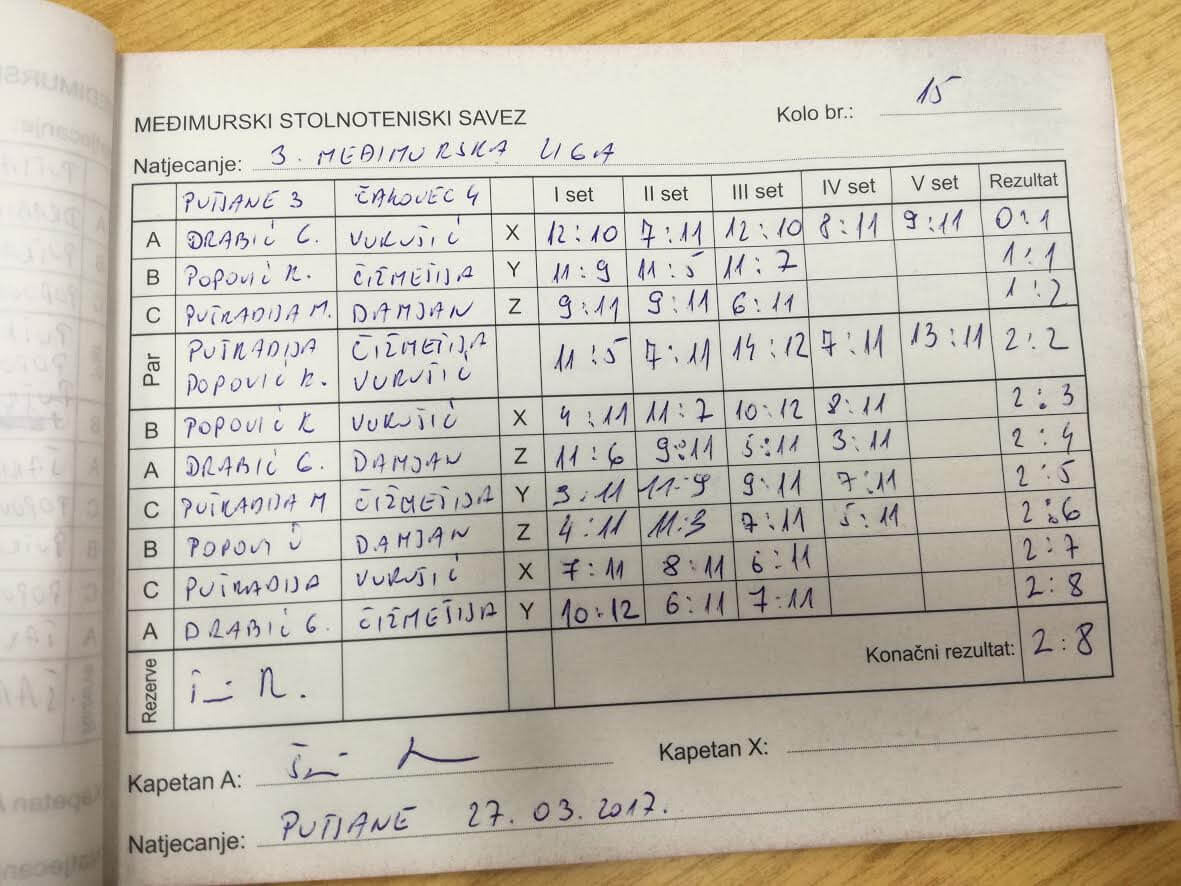 MEĐIMURSKI STOLNOTENISKI SAVEZ
Kolo br.: 15
Natjecanje: 3. MEĐIMURSKA LIGA
PUŠĆANE 3 ČAKOVEC 4 I set II set III set IV set V set Rezultat
A DRABIĆ G. VURUŠIĆ X 12:10 7:11 12:10 8:11 9:11 0:1
B POPOVIĆ R. ČIŽMEŠIJA Y 11:9 11:5 11:7 1:1
C PUŠKADIJA M. DAMJAN Z 9:11 9:11 6:11 1:2
Par PUŠKADIJA ČIŽMEŠIJA 11:5 7:11 14:12 7:11 13:11 2:2
POPOVIĆ R. VURUŠIĆ
B POPOVIĆ R VURUŠIĆ X 4:11 11:7 10:12 8:11 2:3
A DRABIĆ G. DAMJAN Z 11:6 9:11 5:11 3:11 2:4
C PUŠKADIJA M ČIŽMEŠIJA Y 3:11 11-9 9:11 7:11 2:5
B POPOVIĆ DAMJAN Z 4:11 11:3 7:11 5:11 2:6
C PUŠKADIJA VURUŠIĆ X 7:11 8:11 6:11 2:7
A DRABIĆ G. ČIŽMEŠIJA Y 10:12 6:11 7:11 2:8
Rezerve
Konačni rezultat: 2:8
Kapetan A:
Kapetan X:
Natjecanje: 27. 03. 2017.